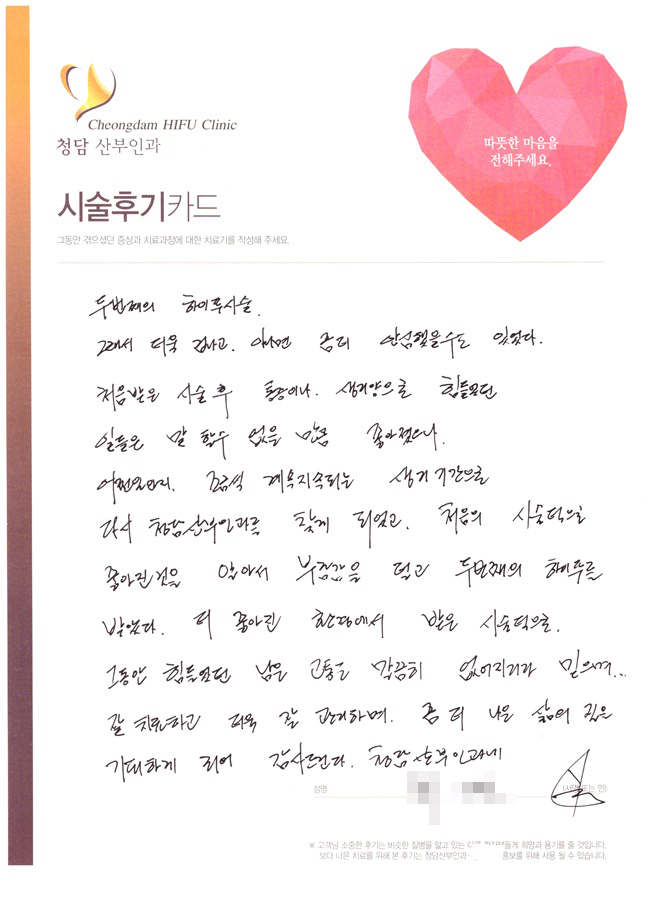 Cheongdam HIFU Clinic
청담 산부인과
따뜻한 마음을
전해주세요.
시술후기카드
그동안 겪으셨던 증상과 치료과정에 대한 치료기를 작성해 주세요.
두번째의 하이푸시술.
그래서 더욱 겁나고. 아니면 좀더 안심했을수도 있었다.
처음받은 시술 후 통증이나. 생리양으로 힘들었던
일들은 말 할수 없을 만큼 좋아졌으나.
어쩐일인지. 조금씩 계속지속되는 생리 기간으로
다시 청담산부인과를 찾게 되었고. 처음의 시술덕으로
좋아진것을 알아서 부담감을 덜고 두번째의 하이푸를
받았다. 더 좋아진 환경에서 받은 시술덕으로.
그동안 힘들었던 남은 고통도 말끔히 없어지리라 믿으며..
잘 치료하고 더욱 잘 관리하며. 좀 더 나은 삶의 질을
기대하게 되어 감사드린다. 청담산부인과에
성명
(서명 또는 인)
※ 고객님 소중한 후기는 비슷한 질병을 앓고 있는 들게 희망과 용기를 줄 것입니다.
보다 나은 치료를 위해 본 후기는 청담산부인과 홍보를 위해 사용 될 수 있습니다.